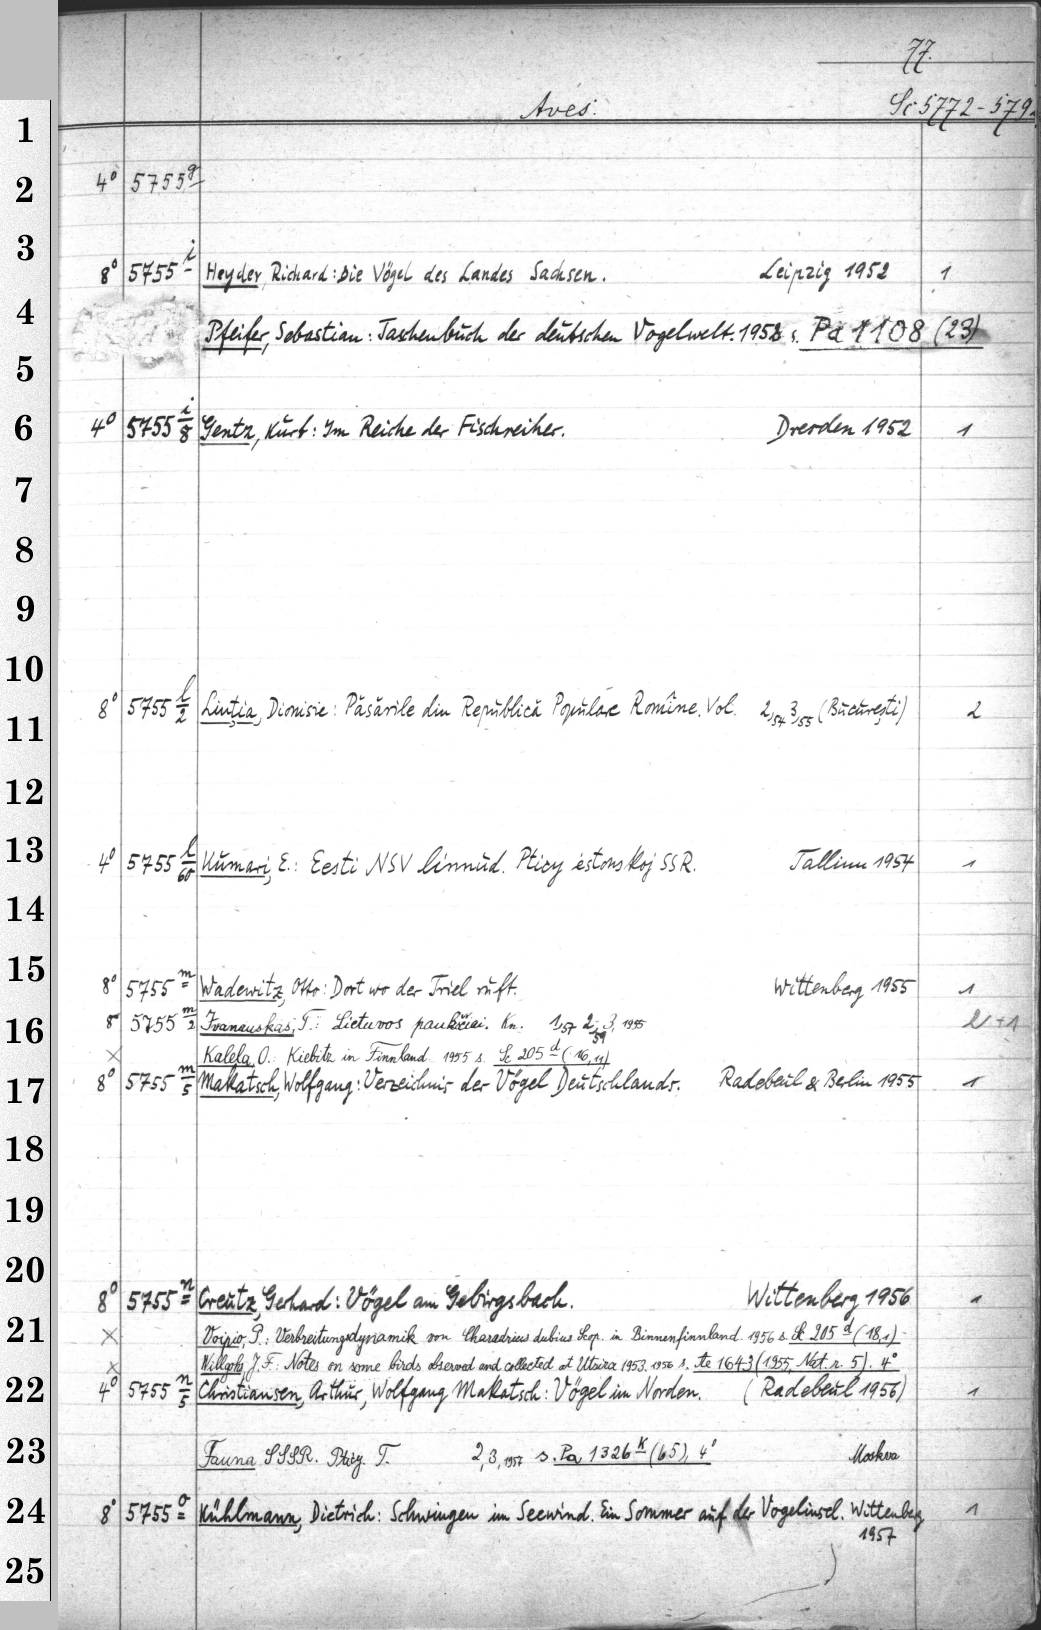 77.
Aves. Sc 5772-579
1
2 4° 5755 g
3 8° 5755 i Heyder, Richard: Die Vögel des Landes Sachsen. Leipzig 1952 1
4 Pfeifer, Sebastian: Taschenbuch der deutschen Vogelwelt. 1952 s. Pa 1108 (23)
5
6 4° 5755 i/8 Gentz, Kurt: Im Reiche der Fischreiher. Dresden 1952 1
7
8
9
10
11 8° 5755 l/2 Linția, Dionisie: Păsările din Republică Populare Romîne. Vol. 2,54 3,55 (București) 2
12
13 4° 5755 l/60 Kumari, E.: Eesti NSV linnud. Pticy èstonskoj SSR. Tallinn 1954 1
14
15 8° 5755 m Wadewitz, Otto: Dort wo der Triel ruft. Wittenberg 1955 1
16 8° 5755 m/2 Ivanauskas, T.: Lietuvos paukščiai. Kn. 1,57 2,59 3, 1955 2+1
× Kalela, O.: Kiebitz in Finnland. 1955 s. Sc 205 d (16,11)
17 8° 5755 m/5 Makatsch, Wolfgang: Verzeichnis der Vögel Deutschlands. Radebeul & Berlin 1955 1
18
19
20
8° 5755 n Creutz, Gerhard: Vögel am Gebirgsbach. Wittenberg 1956 1
21 × Voipio, P.: Verbreitungsdynamik von Charadrius dubius Scop. in Binnenfinnland. 1956 s. Sc 205 d (18,1)
× Willgohs, J. F.: Notes on some birds observed and collected at Utsira 1953. 1956 s. Ae 1643 (1955, Nat. r. 5). 4°
22 4° 5755 n/5 Christiansen, Arthur, Wolfgang Makatsch: Vögel im Norden. (Radebeul 1956) 1
23 Fauna SSSR. Pticy. T. 2,3,1957 s. Pa 1326 K (65), 4° Moskva
24 8° 5755 o Kühlmann, Dietrich: Schwingen im Seewind. Ein Sommer auf der Vogelinsel. Wittenberg 1
1957
25